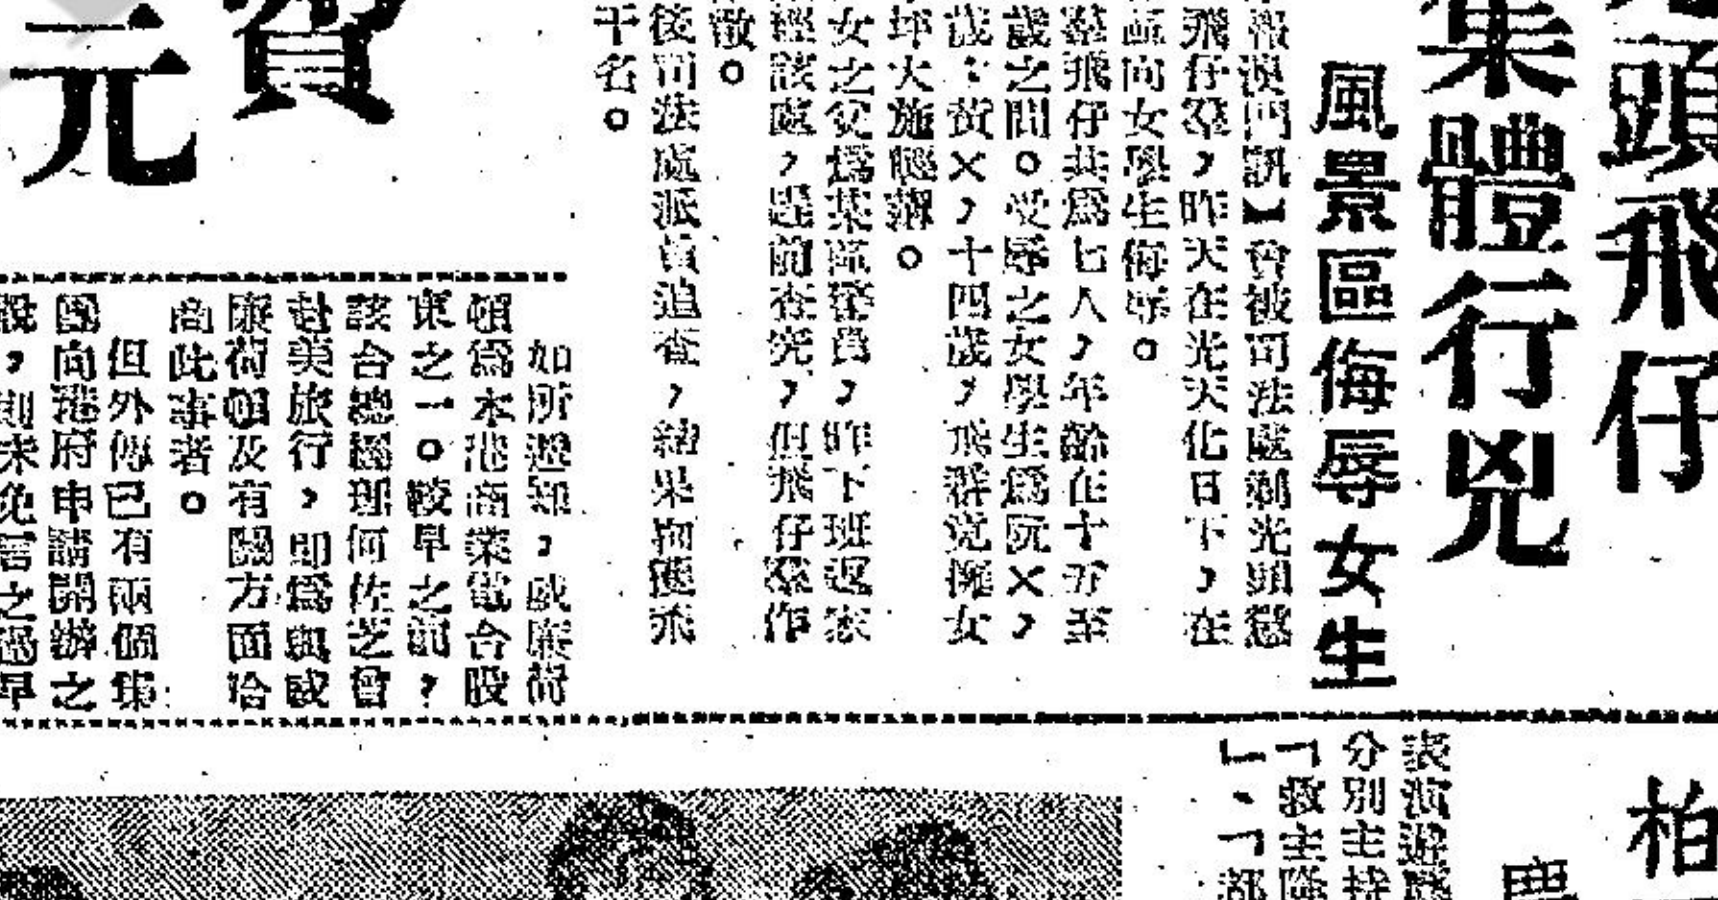 頭飛仔
集體行兇
風景區侮辱女生
報澳門訊】曾被司法處剃光頭懲
飛仔羣，昨天在光天化日下，在
區向女學生侮辱。
羣飛仔共爲七人，年齡在十五至
歲之間。受辱之女學生爲阮×，
歲；黃×，十四歲，飛群党擁女
坪大施輕薄。
女之父爲某區警員，昨下班返家
經該處，趕前查究，但飛仔羣作
散。
後司法處派員追查，結果拘獲飛
干名。
賀
元
如所週知，戚廉荷
頓爲本港商業電合股
東之一。較早之前，
該台總經理何佐芝曾
赴美旅行，即爲與戚
廉荷頓及有關方面洽
商此事者。
但外傳已有兩個集
團向港府申請開辦之
說，則未免言之過早
柏
慶
表演遊
分別主持
「救主
」、「都